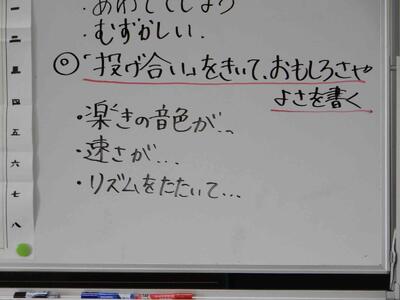 ・あわててしまう
・むずかしい.
◎「投げ合い」をきいて、おもしろさや
よさを書く
・楽きの音色が...
・速さが...
・リズムをたたいて...
一
二
三
四
五
六
七
八